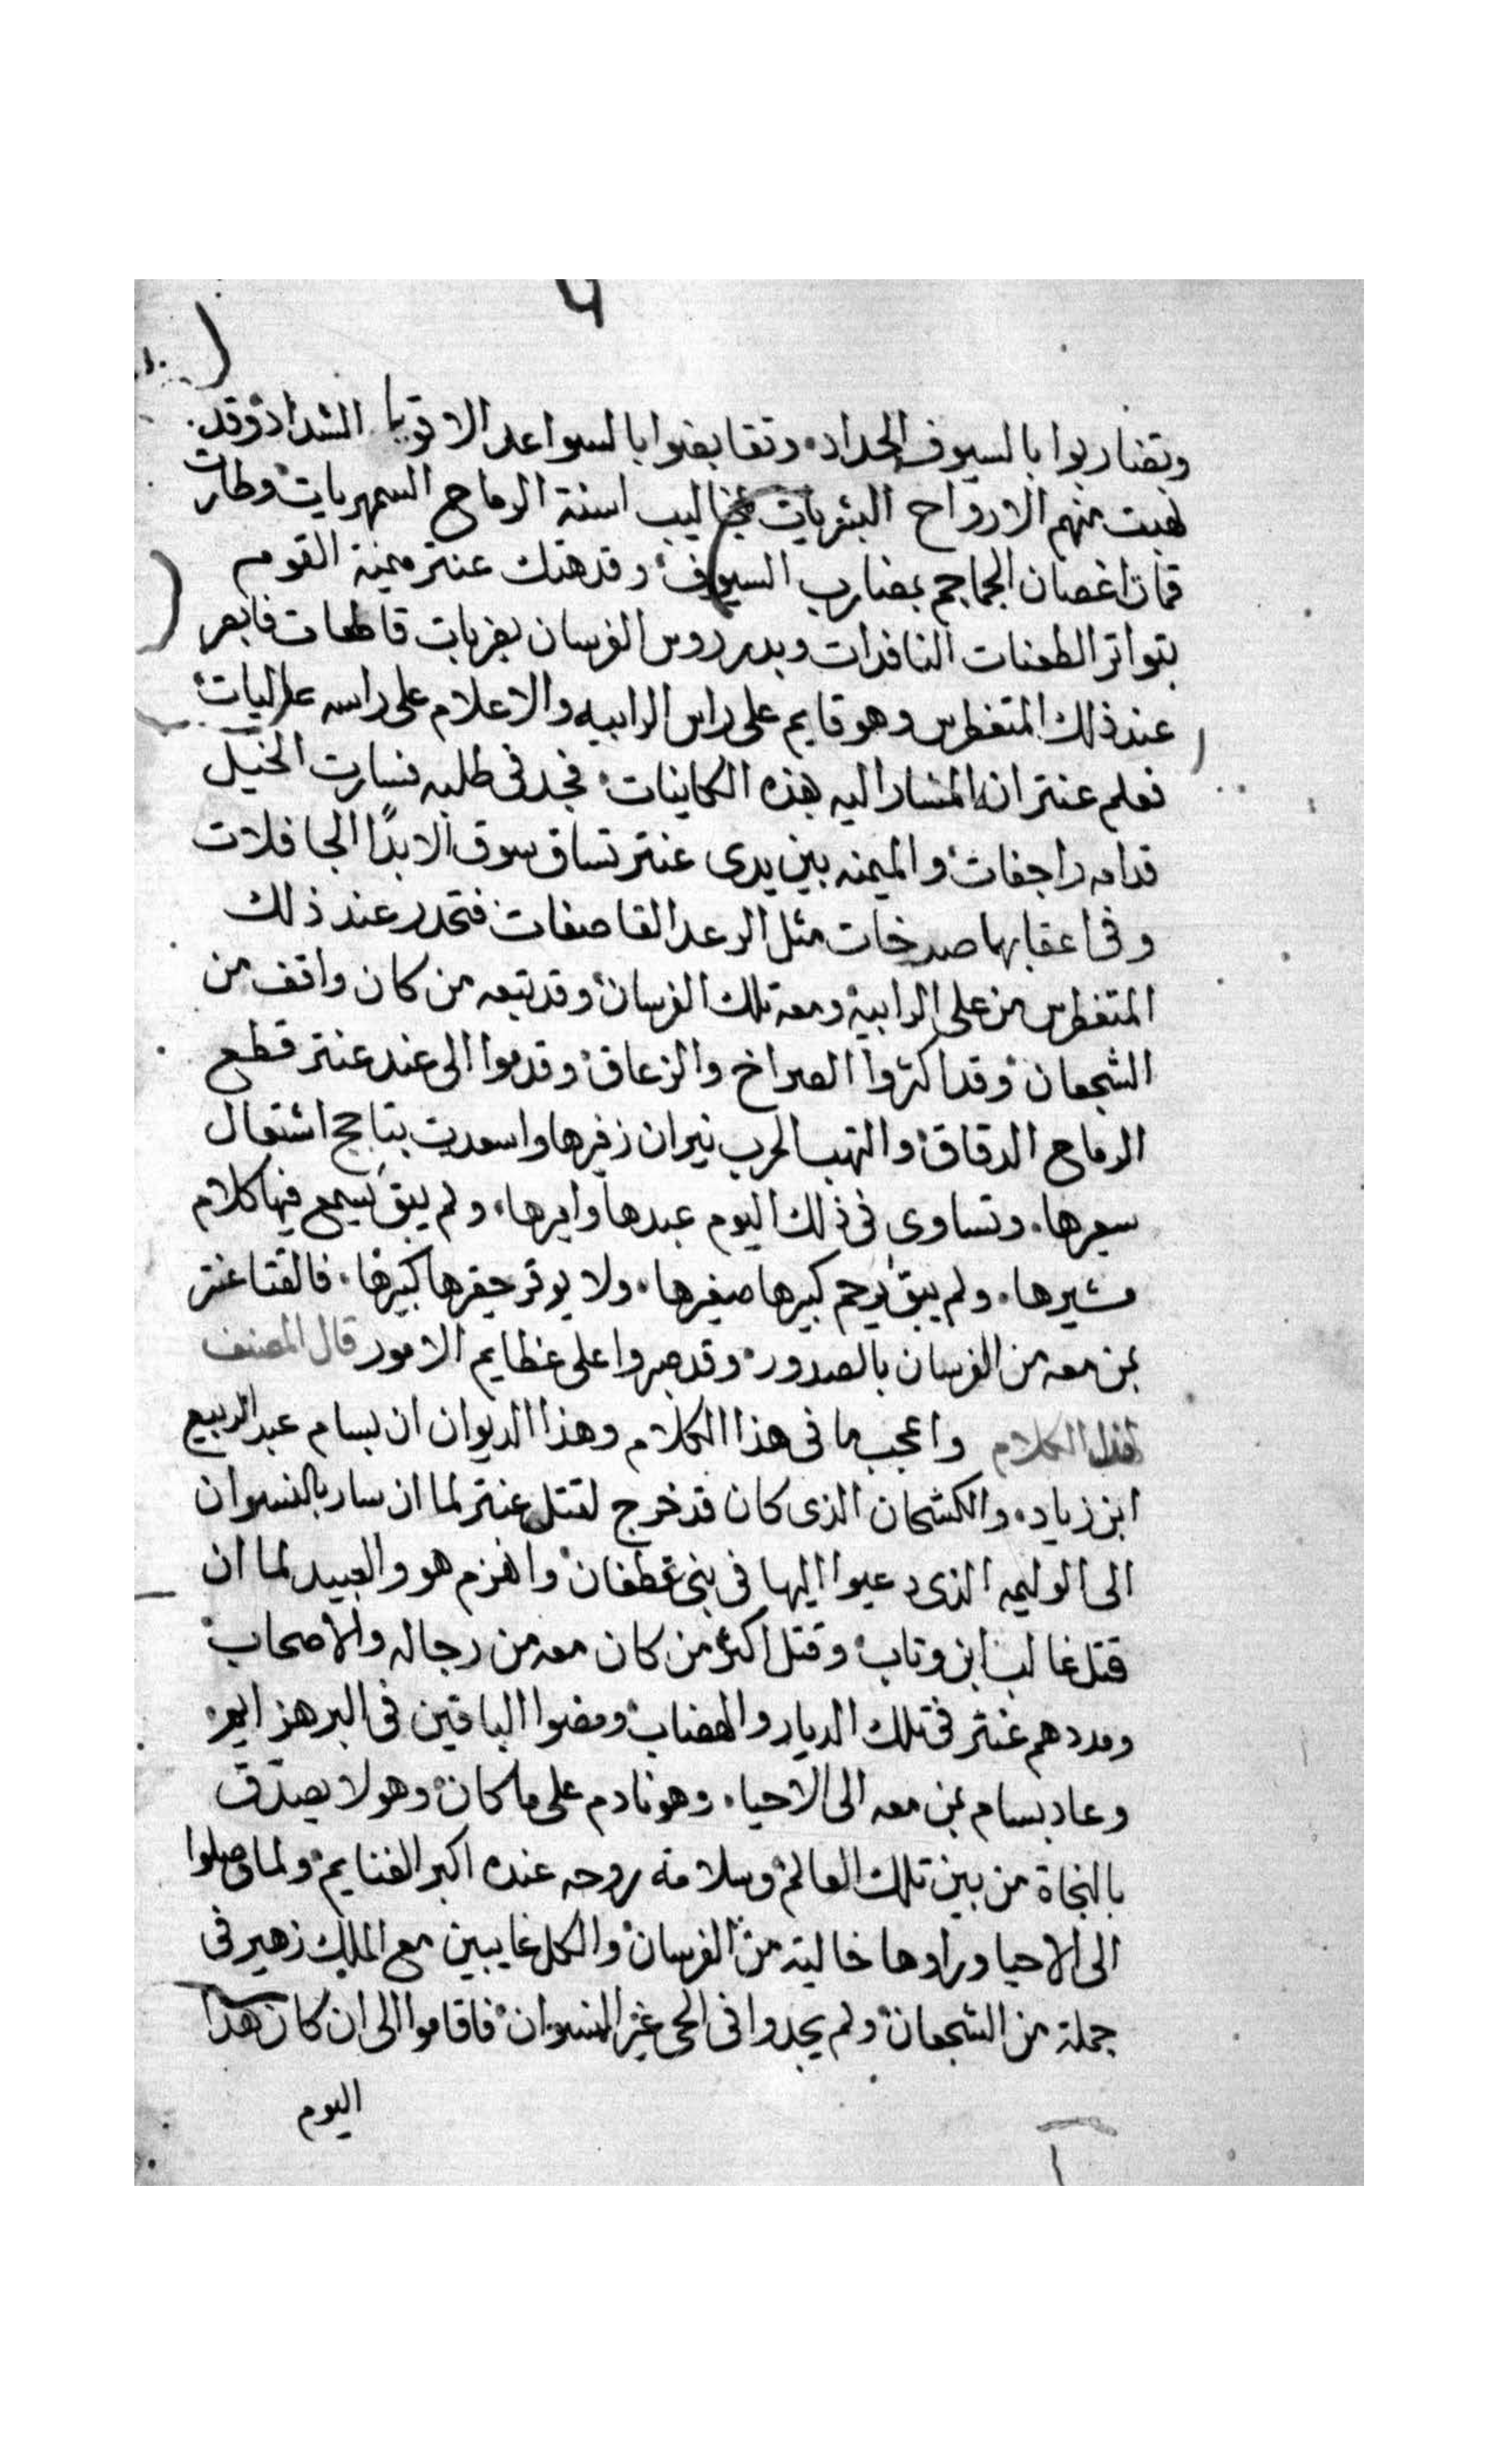 وتضاربوا بالسيوف الحداد. وتقابضوا بالسواعد الاقويا الشداد. وقد
نهبت منهم الارواح البشريات بمخاليب اسنة الرماح السمهريات. وطارت
اغصان الجماجم بمضارب السيوف. وقد هتك عنتر ميمنة القوم
بتواتر الطعنات النافدات وبدر روس الفرسان بضربات قاطعات فابصر
عند ذلك المتغطرس وهو قايم على راس الرابيه والاعلام على راسه عاليات.
فعلم عنتر ان المشار اليه بهذه الكاينات. فجد في طلبه فسارت الخيل
قدامه راجفات. والميمنه بين يدى عنتر تساق سوق الابدًا الجافلات
وفي اعقابها صرخات مثل الرعد القاصفات. فتحدر عند ذلك
المتغطرس من على الرابية. ومعه تلك الفرسان. وقد تبعه من كان واقف من
الشجعان. وقد اكثروا الصراخ والزعاق. وقدموا الى عند عنتر قطع
الرماح الدقاق. والتهب الحرب نيران زفيرها واسعرت بتاجج اشتعال
سعيرها. وتساوى في ذلك اليوم عبدها واميرها. ولم يبق يسمع فيها كلام
مشيرها. ولم يبق يرحم كبيرها صغيرها. ولا يوقر حقيرها كبيرها. فالتقا عنتر
بمن معه من الفرسان بالصدور. وقد صبروا على عظايم الامور قال المصنف
لهذا الكلام واعجب ما في هذا الكلام وهذا الديوان ان بسام عبد الربيع
ابن زياد. والكشحان الذى كان قد خرج لقتل عنتر لما ان سار بالنسوان
الى الوليمه الذى دعيوا اليها في بنى غطفان. وانهزم هو والعبيد لما ان
قتل غالب ابن وتاب. وقتل اكثر من كان معه من رجاله والاصحاب.
ومددهم عنتر في تلك الديار والهضاب. ومضوا الباقين في البر هزايم.
وعاد بسام بمن معه الى الاحيا. وهو نادم على ما كان. وهو لا يصدق
بالنجاة من بين تلك العالم. وسلامة روحه عنده اكبر الغنايم. ولما وصلوا
الى الاحيا وراوها خالية من الفرسان. والكل غايبين مع الملك زهير في
جملة من الشجعان. ولم يجدوا في الحى غير النسوان. فاقاموا الى ان كان هذا
اليوم